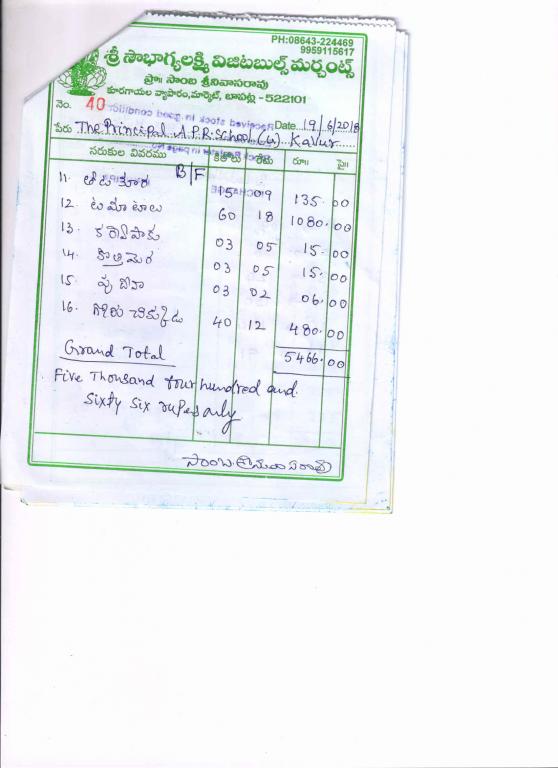 PH:08643-224469
9959115617
శ్రీ సౌభాగ్యలక్ష్మి విజిటబుల్స్ మర్చంట్స్
ప్రొ॥ సాంబ శ్రీనివాసరావు
కూరగాయల వ్యాపారం, మార్కెట్, బాపట్ల - 522101
నెం. 40 Date 19/6/2018
పేరు The Principal A.P.R. School (G) Kavur
సరుకుల వివరము కిలోలు రేటు రూ॥ పై॥
B/F
11. తోటకూర 15 09 135.00
12. టమాటాలు 60 18 1080.00
13. కరేపాకు 03 05 15.00
14. కొత్తిమెర 03 05 15.00
15. పుదీనా 03 02 06.00
16. గోరు చిక్కుడు 40 12 480.00
Grand Total 5466.00
Five Thousand four hundred and
Sixty Six rupes only